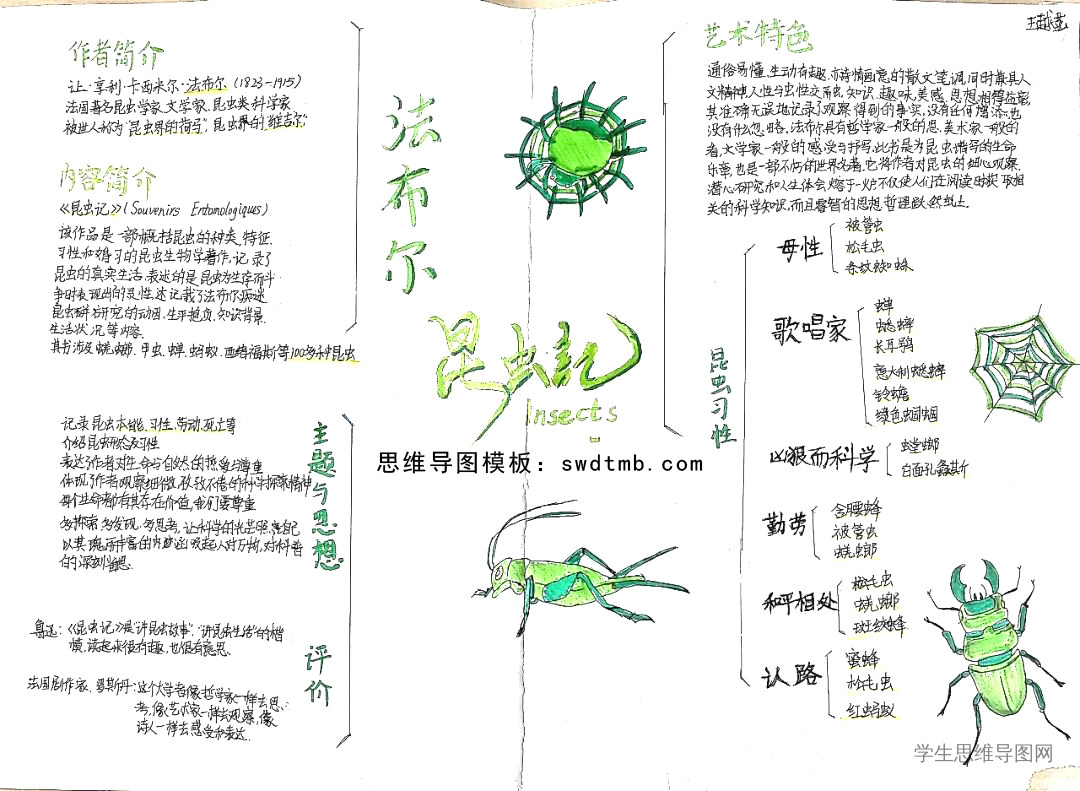 王越蕊
作者简介
让·亨利·卡西米尔·法布尔 (1823-1915)
法国著名昆虫学家、文学家、昆虫类科学家
被世人称为"昆虫界的荷马",昆虫界的"维吉尔"
内容简介
《昆虫记》(Souvenirs Entomologiques)
该作品是一部概括昆虫的种类、特征、
习性和婚习的昆虫生物学著作,记录了
昆虫的真实生活,表述的是昆虫为生存而斗
争时表现出的灵性,还记载了法布尔痴迷
昆虫研究的动因、生平抱负、知识背景、
生活状况等内容.
其书涉及蜣螂、甲虫、蝉、蚂蚁、西绪福斯等100多种昆虫
记录昆虫本能、习性、劳动、死亡等
介绍昆虫形态及习性
表达了作者对生命与自然的热爱与尊重
体现了作者观察细微、孜孜不倦的科学探索精神
每个生命都有其存在价值,我们要尊重
多探索,多发现,多思考,让科学的光芒照亮自己
以其瑰丽丰富的内涵唤起人对万物,对科普
的深刻省思.
主题与思想
鲁迅:《昆虫记》是"讲昆虫故事"、"讲昆虫生活"的楷
模,读起来很有趣,也很有意思.
法国剧作家、罗斯丹:这个大学者像哲学家一样去思
考,像艺术家一样去观察,像
诗人一样去感受和表达.
评价
法布尔
昆虫記
Insects
思维导图模板：swdtmb.com
艺术特色
通俗易懂、生动有趣、亦诗情画意的散文笔调,同时兼具人
文精神,人性与虫性交融,知识、趣味、美感、思想相得益彰
其准确无误地记录了观察得到的事实,没有任何增添,也
没有什么忽略.法布尔具有哲学家一般的思、美术家一般的
看、文学家一般的感受与抒写,此书是为昆虫谱写的生命
乐章,也是一部不朽的世界名著.它将作者对昆虫的细心观察、
潜心研究和人生体会熔于一炉,不仅使人们在阅读时获取相
关的科学知识,而且睿智的思想哲理跃然纸上.
昆虫习性
母性
被管虫
松毛虫
卷纹蜘蛛
歌唱家
蝉
蟋蟀
长耳鸮
意大利蟋蟀
铃蟾
绿色蝈蝈
凶狠而科学
螳螂
白面孔螽斯
勤劳
舍腰蜂
被管虫
蜣螂
和平相处
松毛虫
蜣螂
斑纹蜂
认路
蜜蜂
松毛虫
红蚂蚁
学生思维导图网